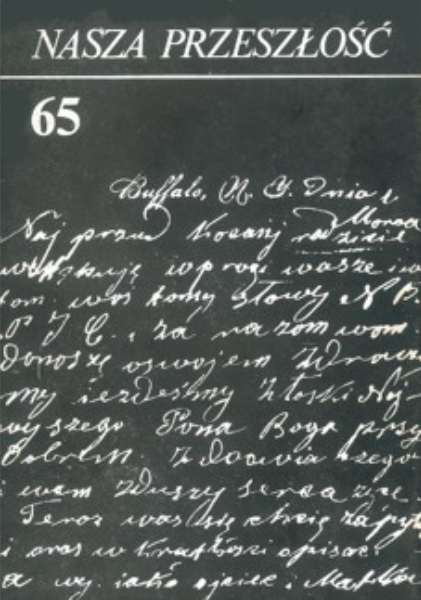 NASZA PRZESZŁOŚĆ
65
Buffalo, N. Y. Dnia 1
Marca
Naj przud Kochanj rodzicie
w progi wasze i w
tom was tomy Słowy N B
P J C. i za razom wom
Donoszę oswojem Zdrowi
my iezdeśmy złaski Naj-
wyszego Pona Boga przy
Dobrem Zdrowia czego
i wam zduszy serca życe
Teroz was się chcię zapyt
i oras w Krutkości opisac
a wy. iako ojciec i Matka